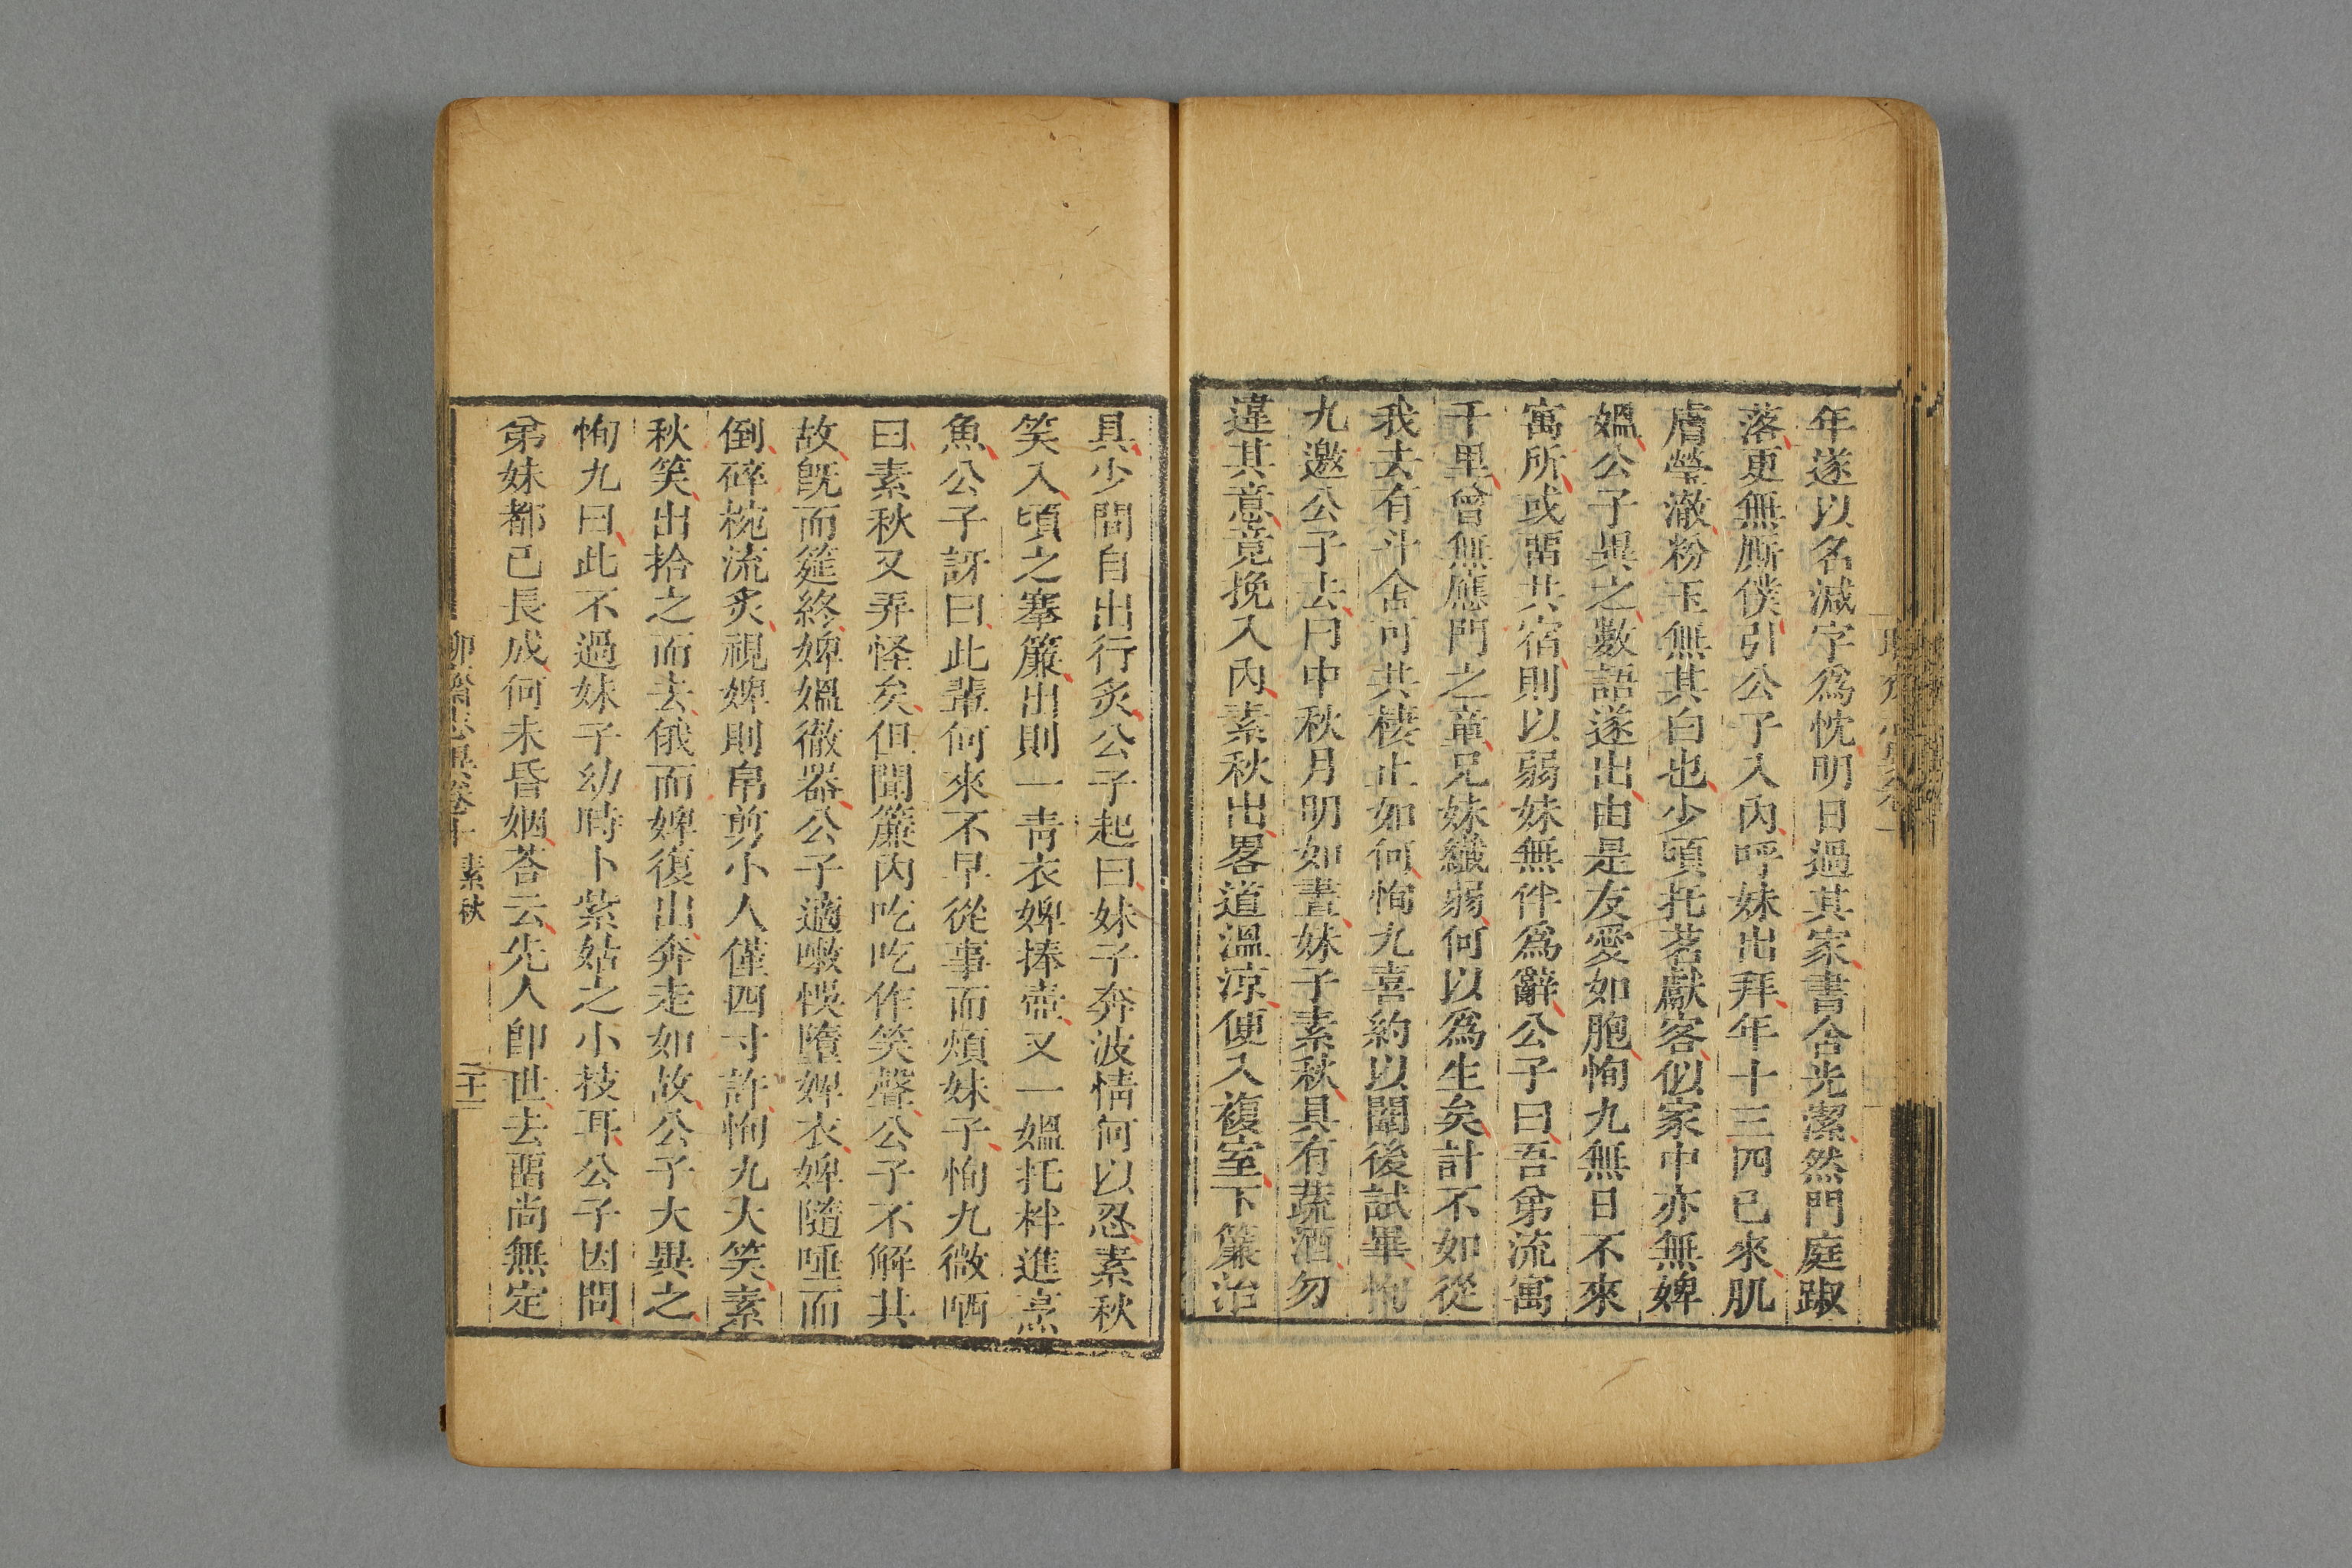 年遂以名減字爲忱明日過其家書舍光潔然門庭踧
落更無厮僕引公子入內呼妹出拜年十三四已來肌
膚瑩澈粉玉無其白也少頃托茗獻客似家中亦無婢
媼公子異之數語遂出由是友愛如胞恂九無日不來
寓所或畱共宿則以弱妹無伴爲辭公子曰吾弟流寓
千里曾無應門之童兄妹纖弱何以爲生矣計不如從
我去有斗舍可共棲止如何恂九喜約以闈後試畢恂
九邀公子去曰中秋月明如晝妹子素秋具有蔬酒勿
違其意竟挽入內素秋出畧道溫涼便入複室下簾治
具少間自出行炙公子起曰妹子奔波情何以忍素秋
笑入頃之搴簾出則一靑衣婢捧壺又一媼托柈進烹
魚公子訝曰此輩何來不早從事而煩妹子恂九微哂
曰素秋又弄怪矣但聞簾內吃吃作笑聲公子不解其
故旣而筵終婢媼徹器公子適嗽悞墮婢衣婢隨唾而
倒碎椀流炙視婢則帛剪小人僅四寸許恂九大笑素
秋笑出拾之而去俄而婢復出奔走如故公子大異之
恂九曰此不過妹子幼時卜紫姑之小技耳公子因問
弟妹都已長成何未昏姻荅云先人卽世去畱尚無定
聊齋志異卷十 素秋 二十二